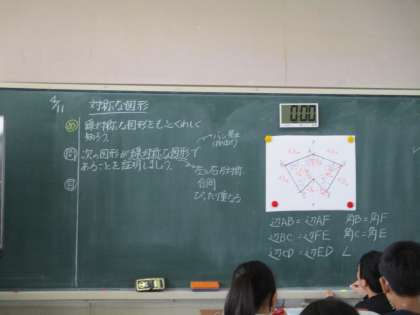 4/11
対称な図形
め 線対称な図形をもっとくわしく
知ろう。
問 次の図形が線対称な図形で
あることを証明しましょう。
左と右が対称
合同
ぴったり重なる
0:00
辺AB=辺AF 角B=角F
辺BC=辺FE 角C=角E
辺CD=辺ED ∠